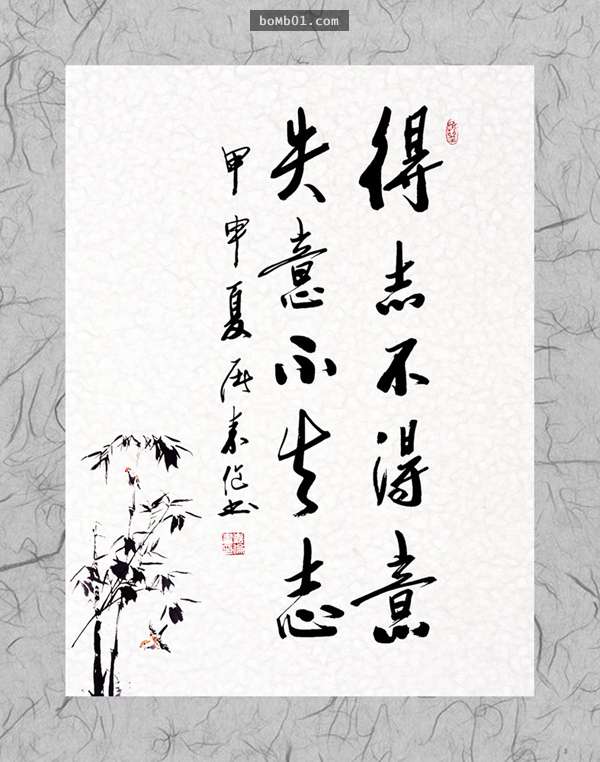 boMb01.com
得志不得意
失意不失志
甲申夏